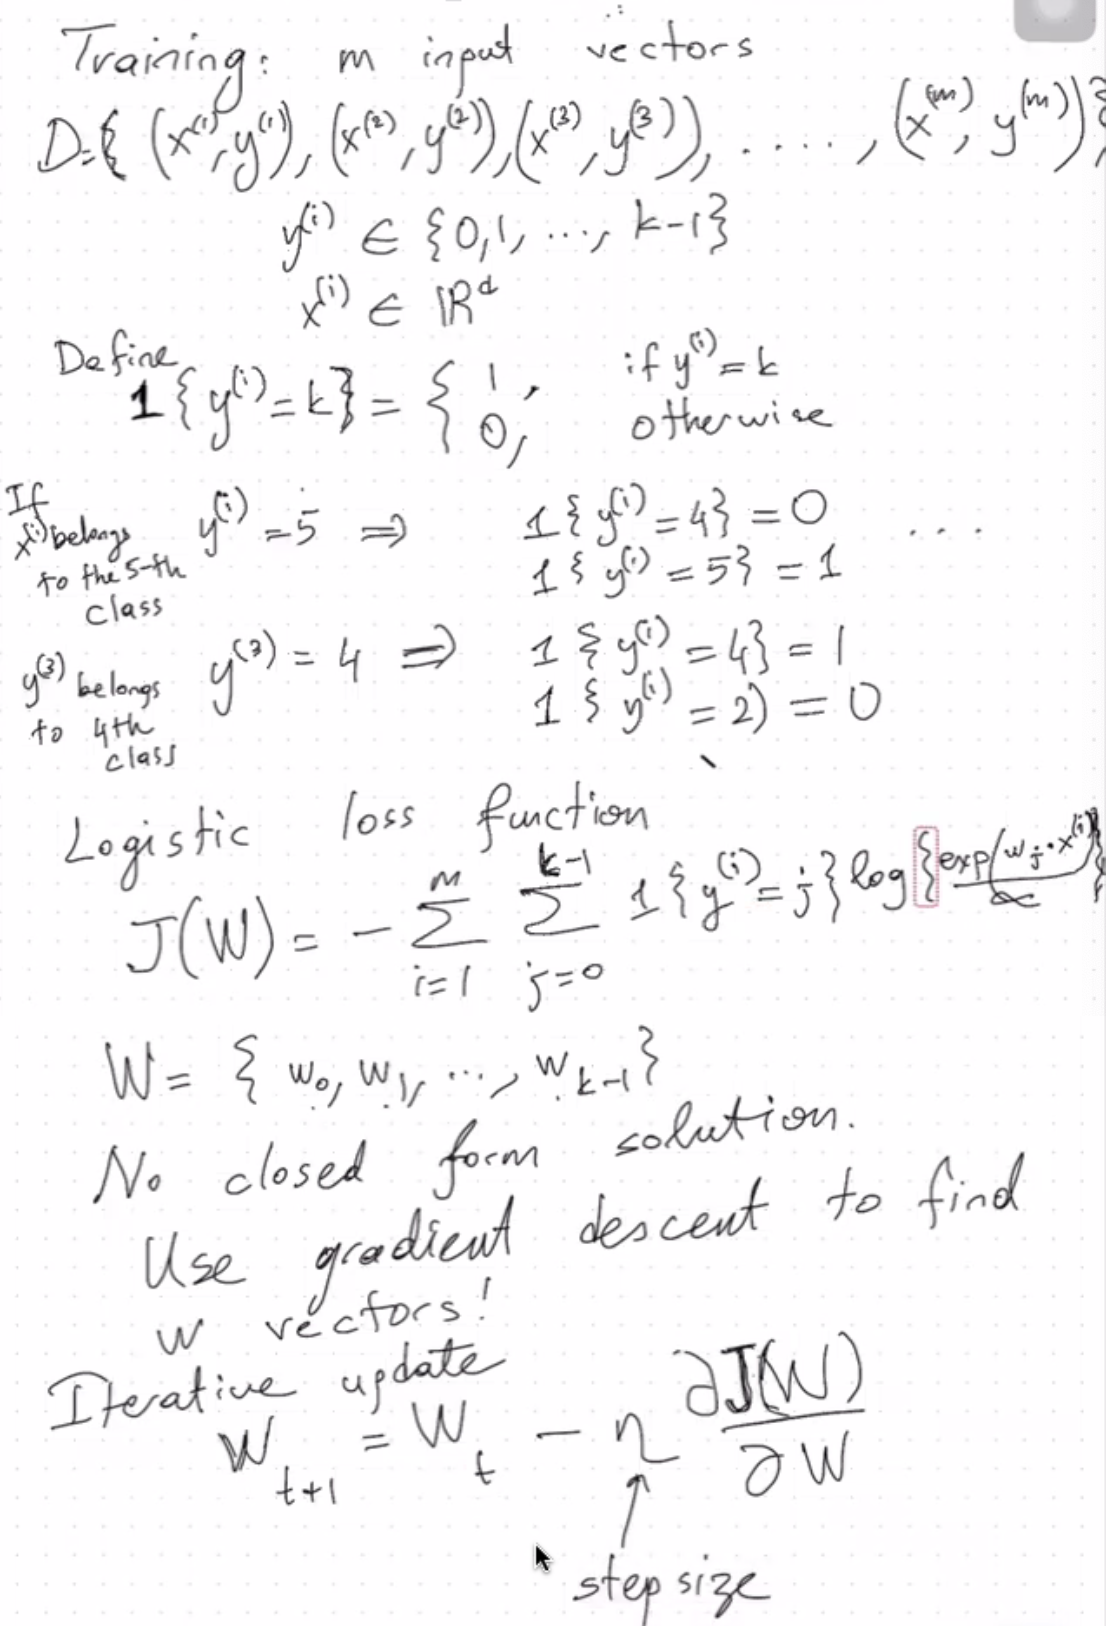 Training: m input vectors
D={ (x^(1), y^(1)), (x^(2), y^(2)), (x^(3), y^(3)), . . . . , (x^(m), y^(m))}
y^(i) ∈ {0,1, ..., k-1}
x^(i) ∈ ℝ^d
Define
1{y^(i) = k} = { 1, if y^(i) = k
0, otherwise
If x^(i) belongs to the 5-th class
y^(i) = 5 ⇒ 1{y^(i) = 4} = 0 ...
1{y^(i) = 5} = 1
y^(3) belongs to 4th class
y^(3) = 4 ⇒ 1{y^(i) = 4} = 1
1{y^(i) = 2) = 0
Logistic loss function
J(W) = - ∑_{i=1}^{m} ∑_{j=0}^{k-1} 1{y^(i) = j} log{exp(w_j · x^(i))/∝}
W = { w_0, w_1, ..., w_{k-1}}
No closed form solution.
Use gradient descent to find
w vectors!
Iterative update
W_{t+1} = W_t - η ∂J(W)/∂W
↑
step size